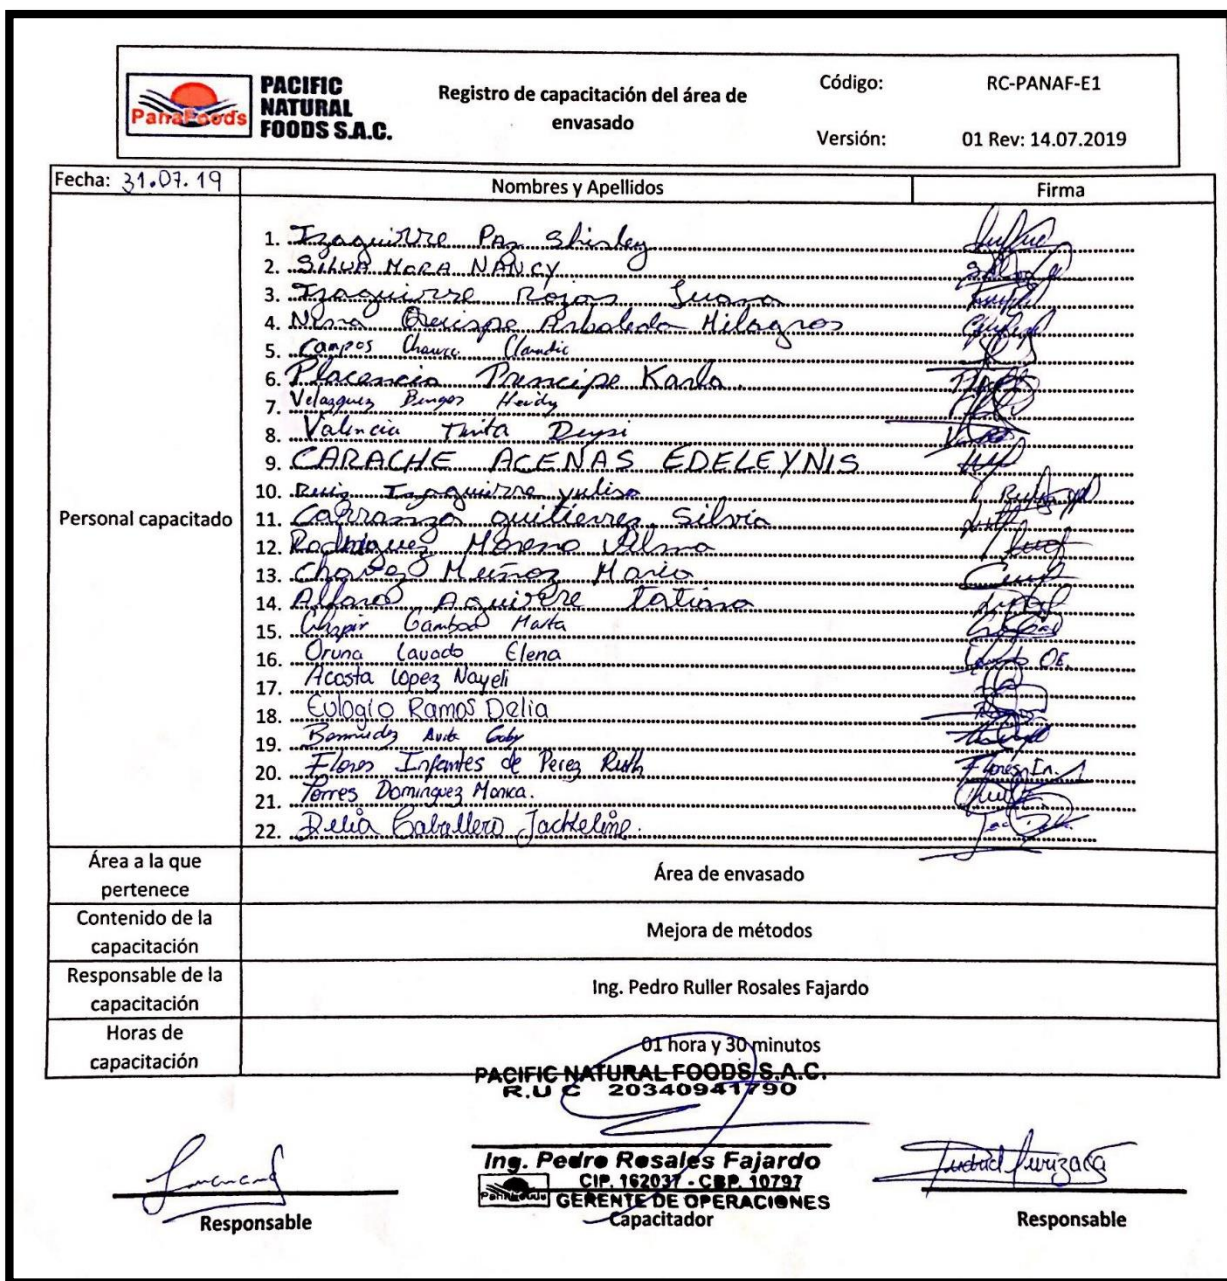 PanaFoods
PACIFIC
NATURAL
FOODS S.A.C.
Registro de capacitación del área de
envasado
Código: RC-PANAF-E1
Versión: 01 Rev: 14.07.2019
Fecha: 31.07.19 Nombres y Apellidos Firma
Personal capacitado
1. Izaguirre Paz Shirley
2. SILVA MORA NANCY
3. Izaguirre Rojas Juana
4. Quispe Arboleda Milagros
5. Campos
6. Placencia Principe Karla.
7. Velazquez Heidy
8. Valencia Deysi
9. CARACHE ACENAS EDELEYNIS
10. Ruiz Izaguirre yulisa
11. Carranza guitierrez Silvia
12. Rodriguez Moreno Vilma
13. Chavez Muñoz Maria
14. Alfaro Aguirre Tatiana
15. Gamboa Marta
16. Oruna Lavado Elena
17. Acosta lopez Nayeli
18. Eulogio Ramos Delia
19. Gaby
20. Flores Infantes de Perez Ruth Flores In.
21. Torres Dominguez Monica.
22. Delia Caballero Jackeline.
Área a la que
pertenece
Área de envasado
Contenido de la
capacitación
Mejora de métodos
Responsable de la
capacitación
Ing. Pedro Ruller Rosales Fajardo
Horas de
capacitación
01 hora y 30 minutos
PACIFIC NATURAL FOODS S.A.C.
R.U C 20340941790
Ing. Pedro Rosales Fajardo
CIP. 162037 - CBP. 10797
PanaFoods GERENTE DE OPERACIONES
Responsable Capacitador Responsable